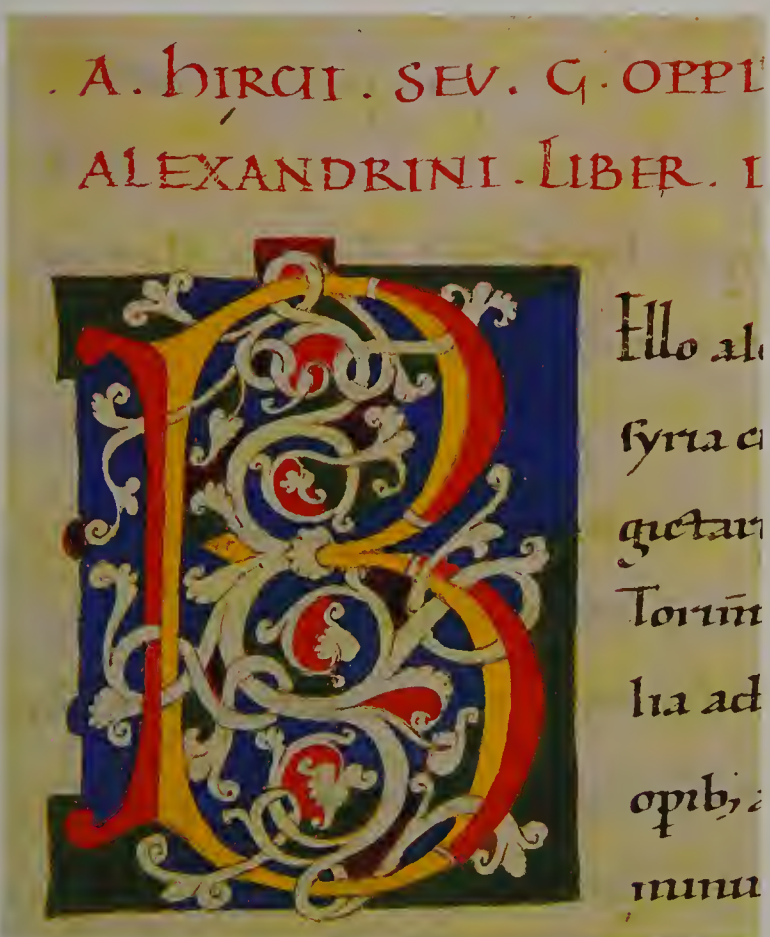 . A . hIRCII . SEV . G . OPPI
ALEXANDRINI . LIBER . I
BEllo al
syria c
gietari
Torm̄
lia ad
opib; a
minu